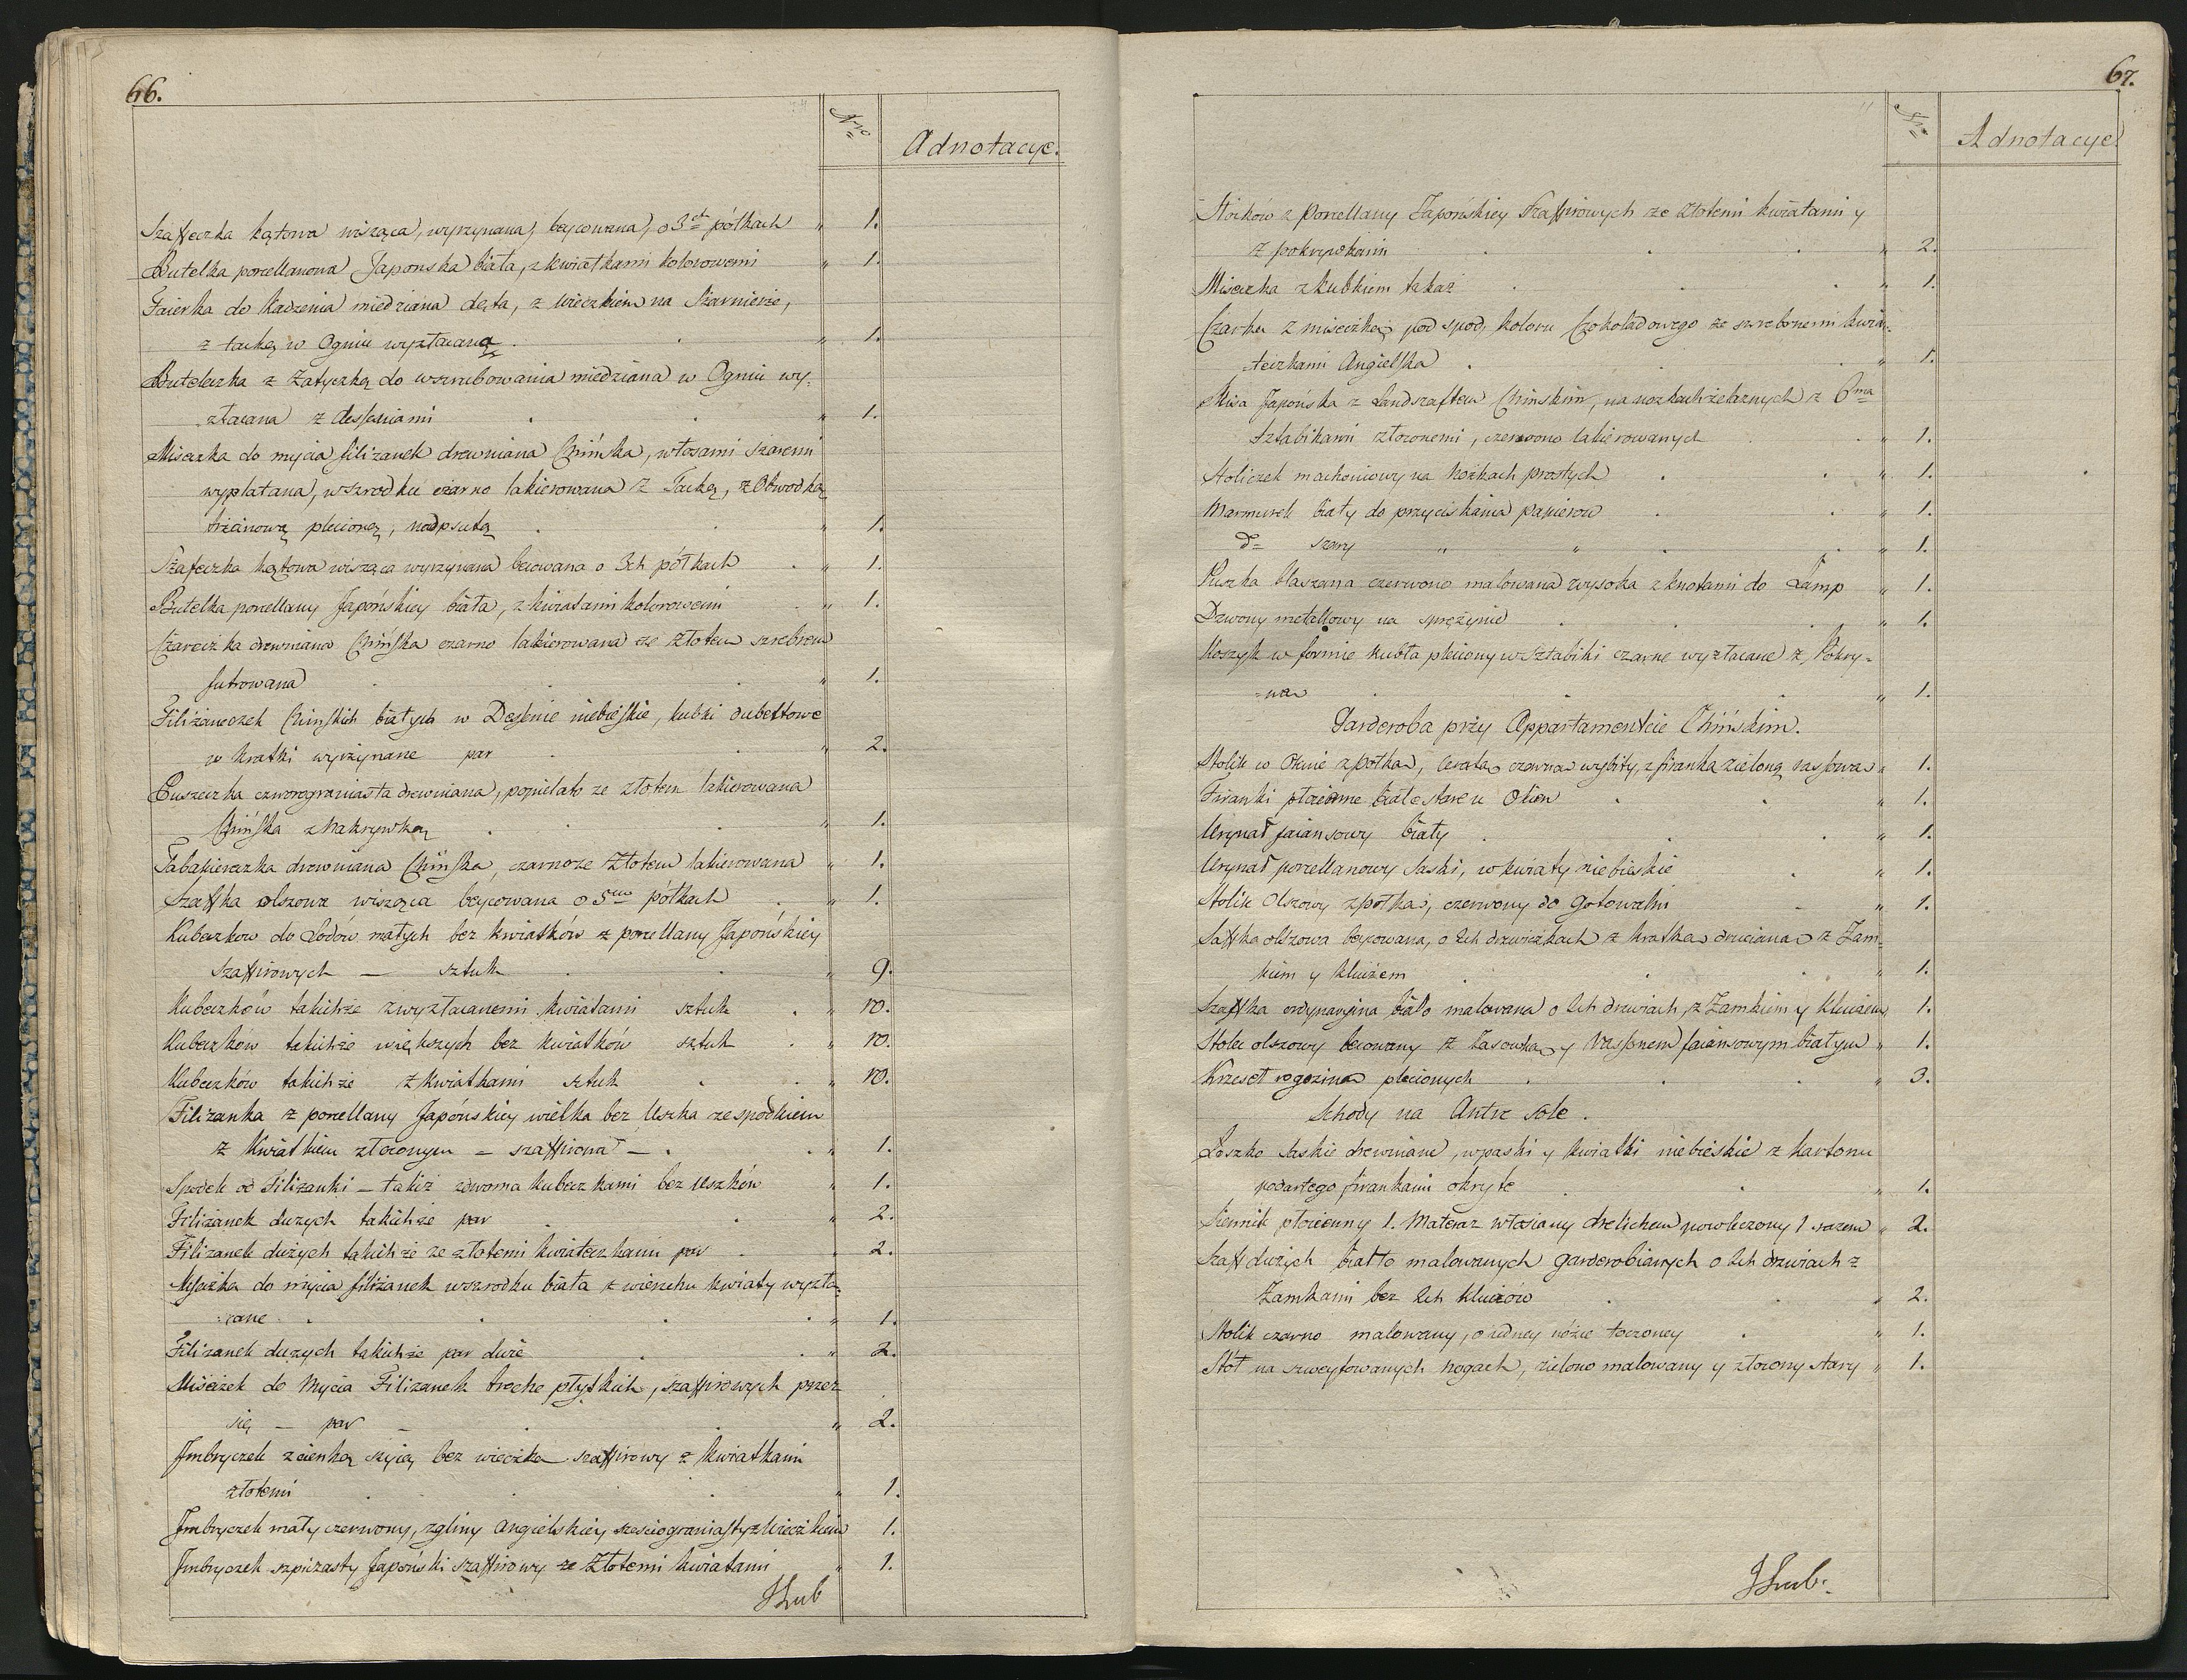 66.
Nro
Adnotacye.
Szaffeczka kątowa wisząca, wyrzynana, beycowana, o 3ch półkach „ 1.
Butelka porcellanowa Japonska biała, z kwiatkami kolorowemi „ 1.
Faierka do kadzenia miedziana dęta, z wieczkiem na Szarnierze,
z tacką w Ogniu wyzłacaną „ 1.
Buteleczka z Zatyczką do wszrubowania miedziana w Ogniu wy-
złacana z desseniami „ 1.
Miseczka do mycia filiżanek drewniana Chińska, włosami szaremi
wyplatana, wszrodku czarno lakierowana z Tacką, z Obwodką
trzcinową plecioną, nadpsutą „ 1.
Szafeczka kątowa wisząca wyrzynana becowana o 3ch półkach „ 1.
Butelka porcellany Japońskiey biała, z kwiatami kolorowemi „ 1.
Czareczka drewniana Chińska czarno lakierowana ze złotem szrebrem
futrowana „ 1.
Filiżaneczek Chinskich białych w Desenie niebieskie, kubki dubeltowe
w kratki wyrzynane par „ 2.
Puszeczka czworograniasta drewniana, popielato ze złotem lakierowana
Chińska z Nakrywką „ 1.
Tabakiereczka drewniana Chińska, czarno ze Złotem lakierowana „ 1.
Szaffka olszowa wisząca beycowana o 5ciu półkach „ 1.
Kubeczkow do Lodów małych bez kwiatków z porcellany Japońskiey
Szaffirowych — sztuk „ 9.
Kubeczków takichże z wyzłacanemi kwiatami sztuk „ 10.
Kubeczków takichże większych bez kwiatków sztuk „ 10.
Kubeczków takichże z kwiatkami sztuk „ 10.
Filiżanka z porcellany Japońskiey wielka bez Uszka ze spodkiem
z Kwiatkiem złoconym — szaffirowa — „ 1.
Spodek od Filiżanki — takiż z dwoma kubeczkami bez Uszków „ 1.
Filiżanek duzych takichże par „ 2.
Filiżanek dużych takichże ze złotemi kwiateczkami par „ 2.
Miseczka do mycia filiżanek wszrodku biała z wierzchu kwiaty wyzła-
cane „ 1.
Filiżanek duzych takichże par dwie „ 2.
Miseczek do Mycia Filiżanek troche płytkich, szaffirowych przez
się — par — „ 2.
Jmbryczek z cienką szyią bez wieczka szaffirowy z kwiatkami
złotemi „ 1.
Jmbryczek mały czerwony, z gliny angielskiey sześciograniasty z Wieczkiem 1.
Jmbryczek szpiczasty Japoński szaffirowy ze Złotemi kwiatami „ 1.
67.
Nro
Adnotacye.
Stoików z Porcellany Japońskiey Szaffirowych ze Złotemi kwiatami y
z pokrywkami „ 2.
Miseczka z kubkiem takaż „ 1.
Czarka z miseczką pod spod, koloru Czokoladowego ze szrebnemi kwia-
teczkami Angielska „ 1.
Misa Japońska z Landszaftem Chinskim, na nozkach żelaznych z 6ma
sztabikami złoconemi, czerwono lakierowanych „ 1.
Stoliczek machoniowy na Nożkach prostych „ 1.
Marmurek biały do przyciskania papierow „ 1.
do szary „ „ „ 1.
Puszka blaszana czerwono malowana wysoka z knotami do Lamp „ 1.
Dzwony metallowy na sprężynie „ 1.
Koszyk w formie kubła pleciony w Sztabiki czarne wyzłacane z Pokry-
-wa „ 1.
Garderoba przy Appartamencie Chińskim.
Stolik w Oknie z połką, ceratą czarną wybity, z firanką zieloną 1.
Firanki płocienne białe stare u Okien „ 1.
Urynał faiansowy biały „ 1.
Urynał porcellanowy Saski, w kwiaty niebieskie „ 1.
Stolik Olszowy z połką, czerwony do gotowalni „ 1.
Saffka olszowa beycowana, o 2ch drzwiczkach z kratką druciana z Zam-
kiem y kluczem „ 1.
Szaffka ordynaryina biało malowana o 2ch drzwiach, z Zamkiem y kluczem 1.
Stolec olszowy becowany z Zasówką y Naspnem faiansowym białym „ 1.
Krzeseł rogoziną plecionych „ 3.
Schody na Antresole.
Łoszko Saskie drewniane, w paski y kwiatki niebieskie z kartonu
podartego firankami okryte „ 1.
Siennik płocienny 1. Materaz włosiany drelichem powleczony 1 razem „ 2.
Szaff dużych biało malowanych garderobianych o 2ch drzwiach z
Zamkami bez 2ch kluczów „ 2.
Stolik czarno malowany, o iedney nóżce toczoney „ 1.
Stół na szweyfowanych nogach, zielono malowany y złocony stary „ 1.